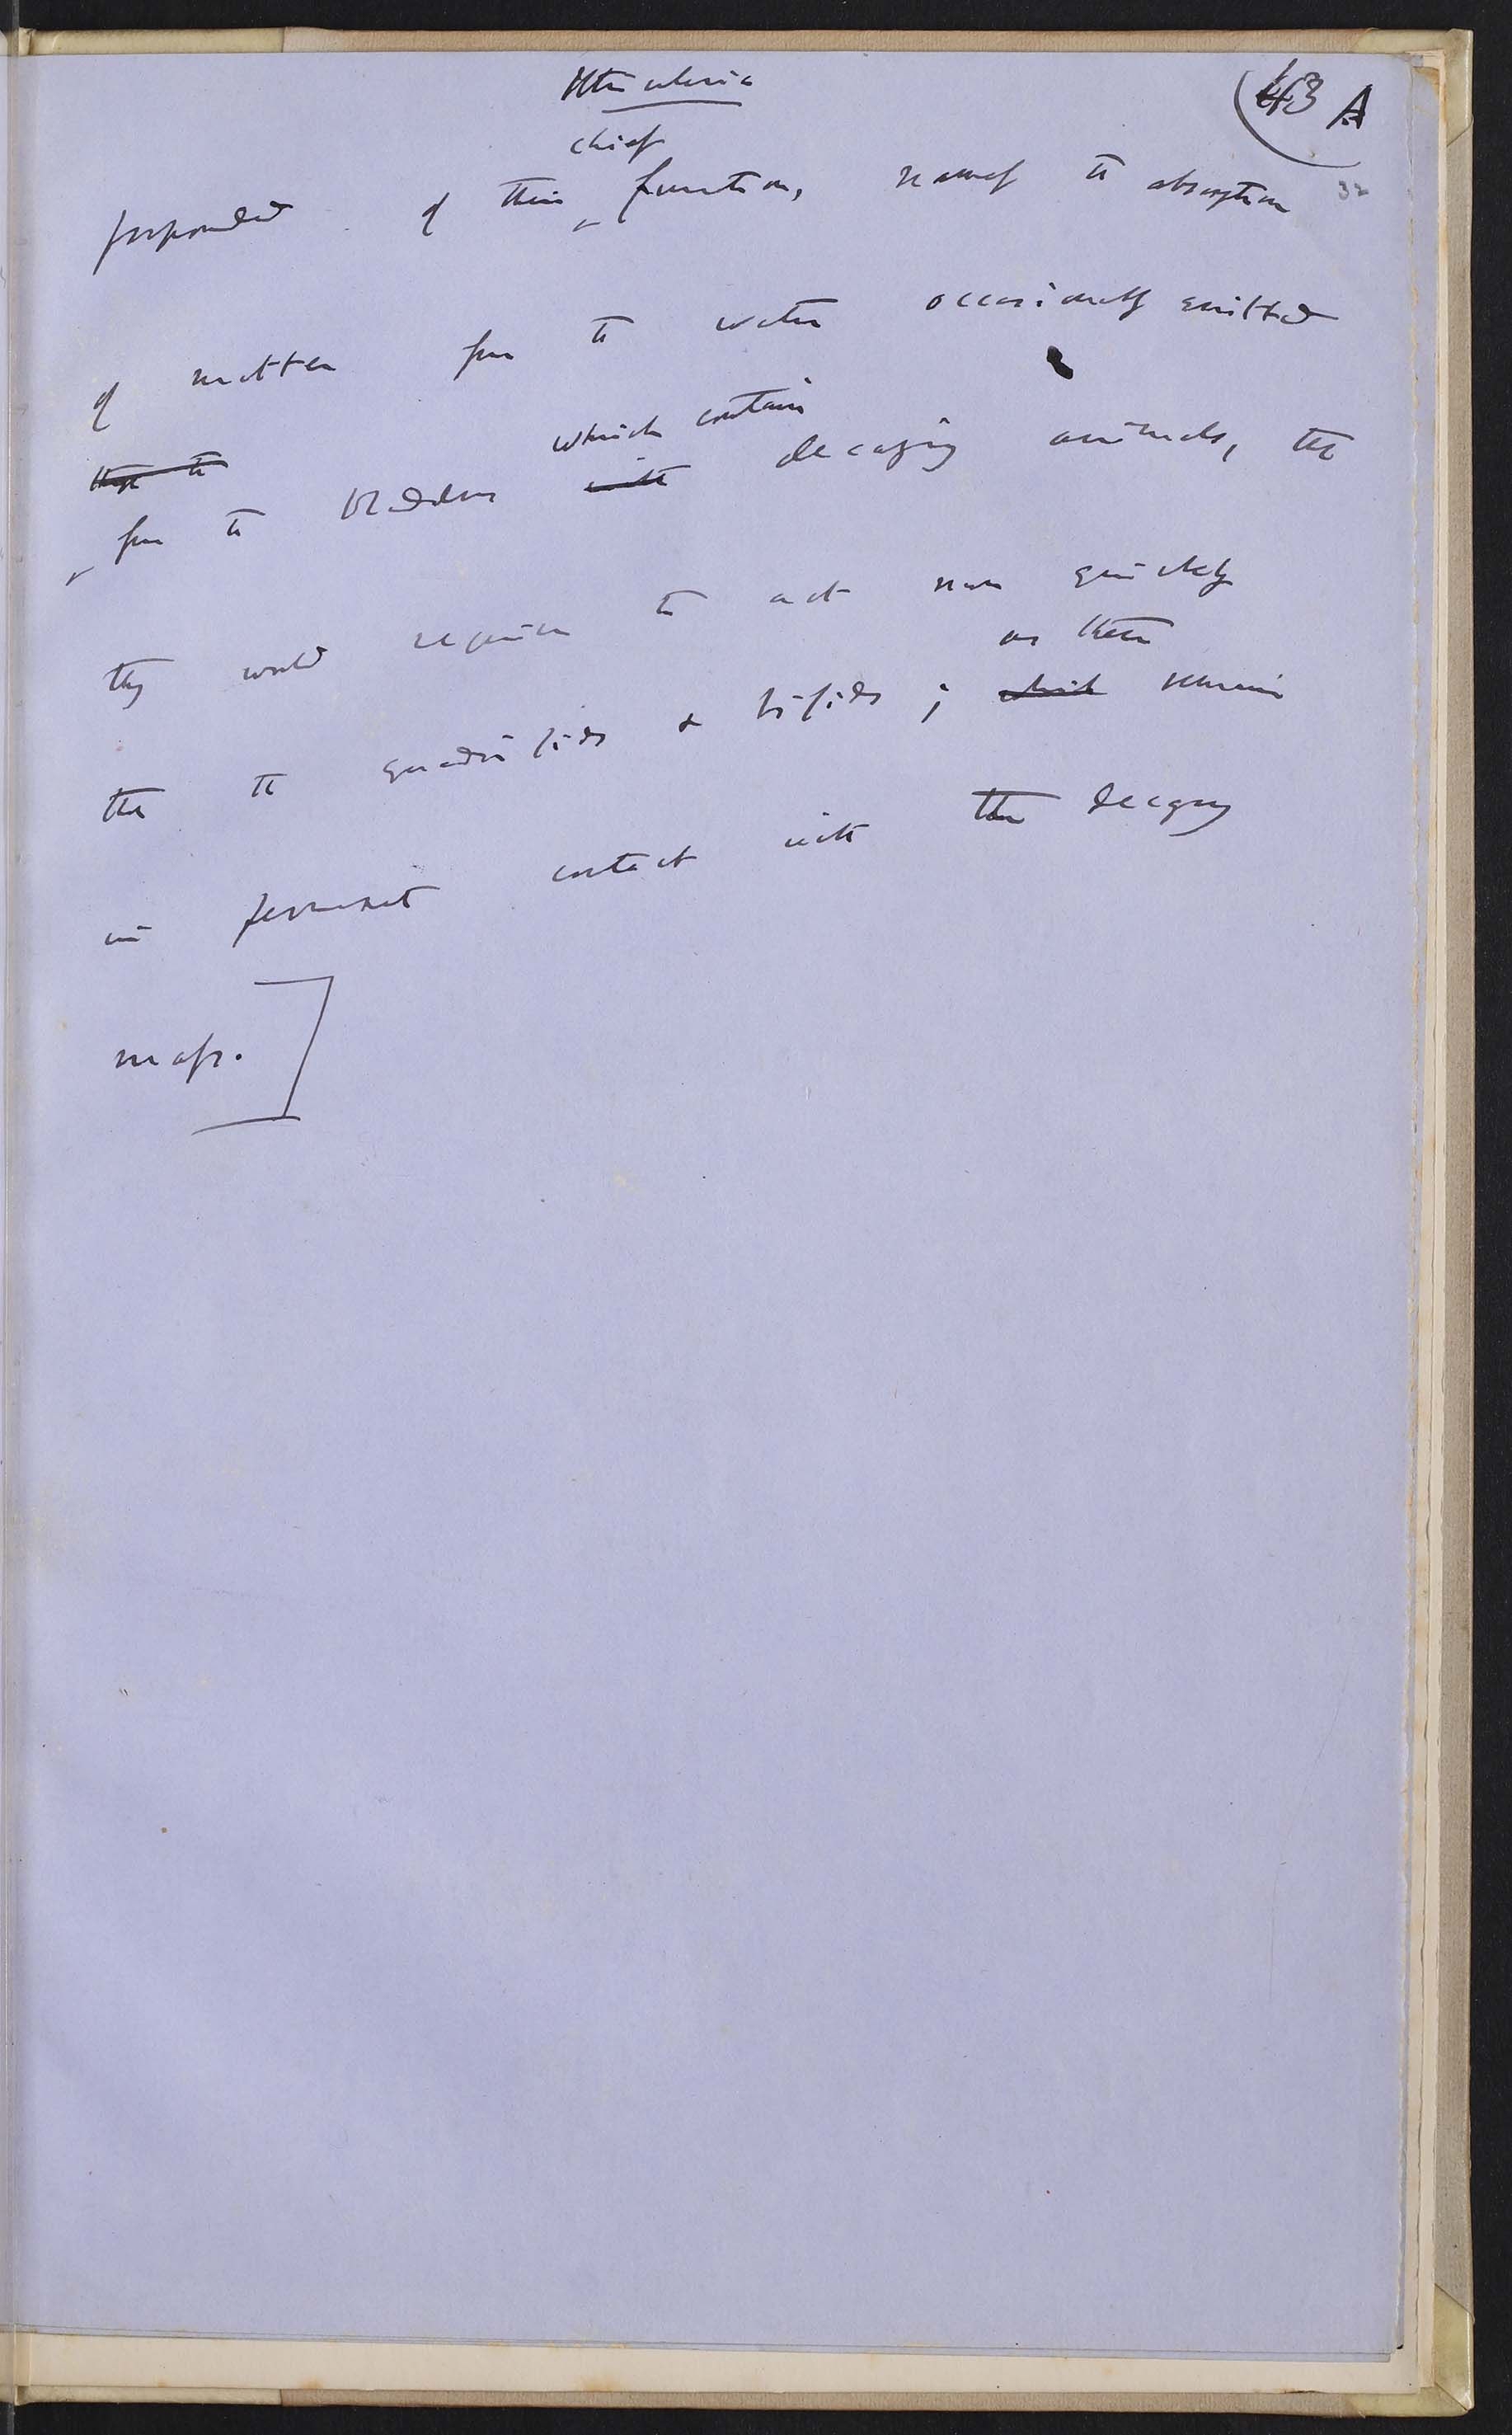 Utricularia
(43 A
32
chief
propounded of their function, namely the absorption
of matter from the water occasionally emitted
which contain
from the bladders with decaying animals, the
they would require to act more quickly
as these
than the quadrifids & bifids ; which remain
in permanent contact with the decaying
mass.]